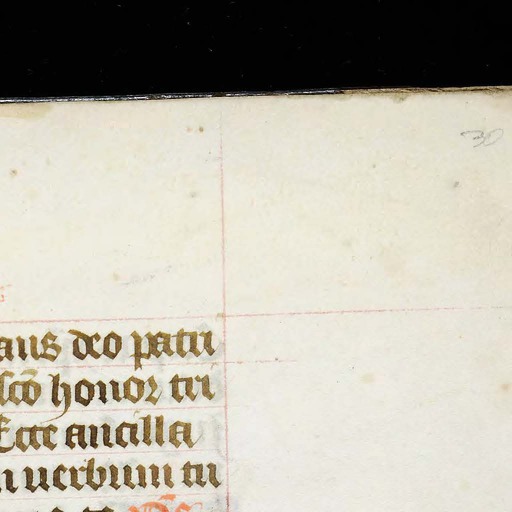 30
aus deo patri
scō honor tri
Ecce ancilla
uerbum tu